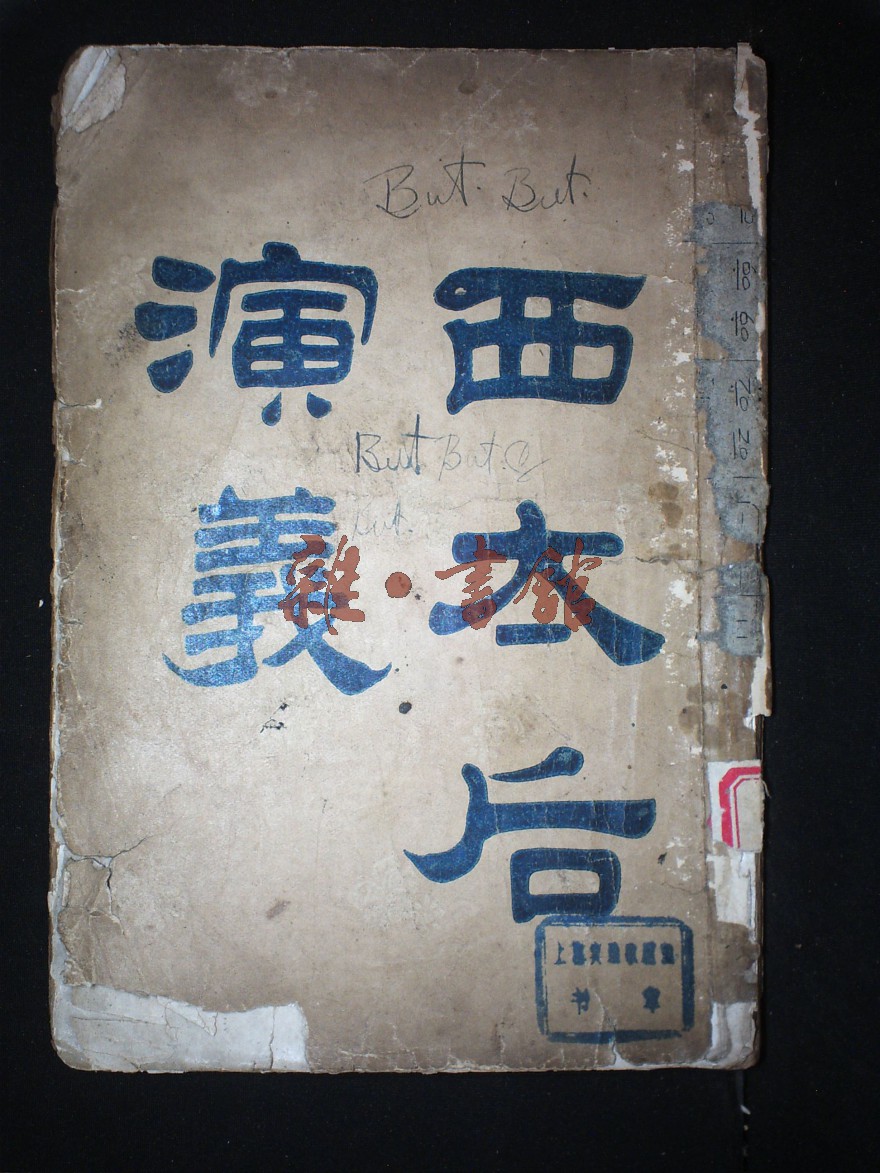 But. But.
西太后
演義
But But.
But.
雜·書館